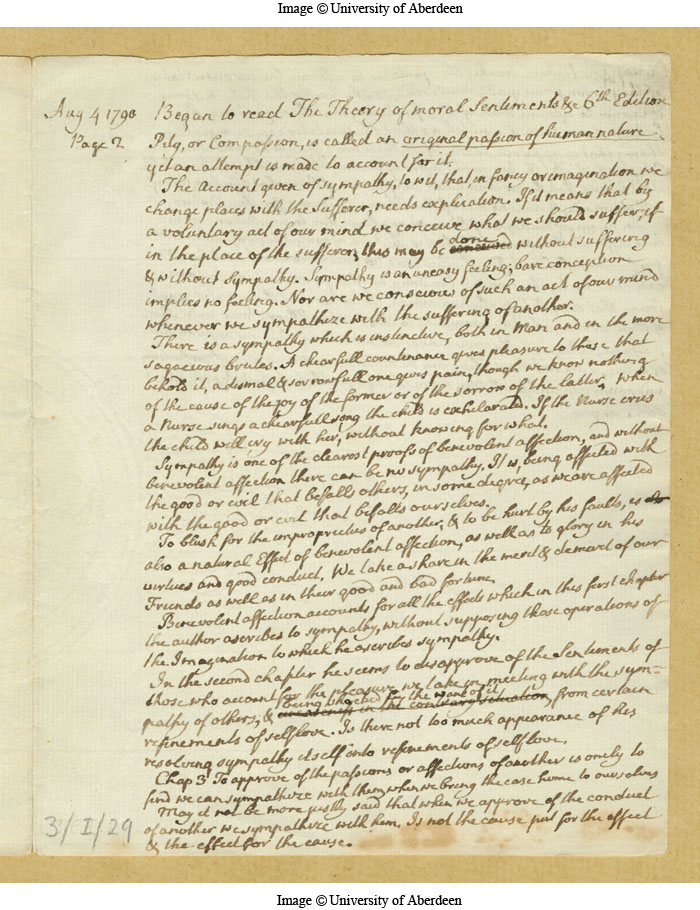 Image © University of Aberdeen
Aug 4 1790 Began to read The Theory of moral Sentiments &c 6th Edition
Page 2 Pity, or Compassion, is called an original passion of human nature
yet an attempt is made to account for it.
The Account given of sympathy, to wit, that in fancy or imagination we
change places with the Sufferer, needs explication. If it means that by
a voluntary act of our mind we conceive what we should suffer, if
in the place of the sufferer, this may be done without suffering
& without Sympathy. Sympathy is an uneasy feeling; bare conception
implies no feeling. Nor are we conscious of such an act of our mind
whenever we sympathize with the suffering of another.
There is a sympathy which is instinctive, both in Man and in the more
sagacious brutes. A chearfull countenance gives pleasure to those that
behold it, a dismal & sorrowfull one gives pain, though we know nothing
of the cause of the joy of the former or of the sorrow of the latter. When
a Nurse sings a chearfull song the child is exhilarated. If the Nurse cries
the child will cry with her, without knowing for what.
Sympathy is one of the clearest proofs of benevolent affection, and without
benevolent affection there can be no sympathy. It is, being affected with
the good or evil that befalls others, in some degree, as we are affected
with the good or evil that befalls ourselves.
To blush for the improprieties of another, & to be hurt by his faults, is
also a natural Effect of benevolent affection, as well as to glory in his
virtues and good conduct. We take a share in the merit & demerit of our
Friends as well as in their good and bad fortune.
Benevolent affection accounts for all the effects which in this first chapter
the author ascribes to sympathy, without supposing those operations of
the Imagination to which he ascribes sympathy.
In the second chapter he seems to disapprove of the Sentiments of
those who account for the pleasure we take in meeting with the sym-
pathy of others, & being shocked by the want of it, from certain
refinements of selflove. Is there not too much appearance of his
resolving sympathy itself into refinements of selflove.
Chap 3 To approve of the passions or affections of another is onely to
find we can sympathize with them, when we bring the case home to ourselves
May it not be more justly said that when we approve of the conduct
of another we sympathize with him. Is not the cause put for the effect
& the effect for the cause.
3/I/29
Image © University of Aberdeen